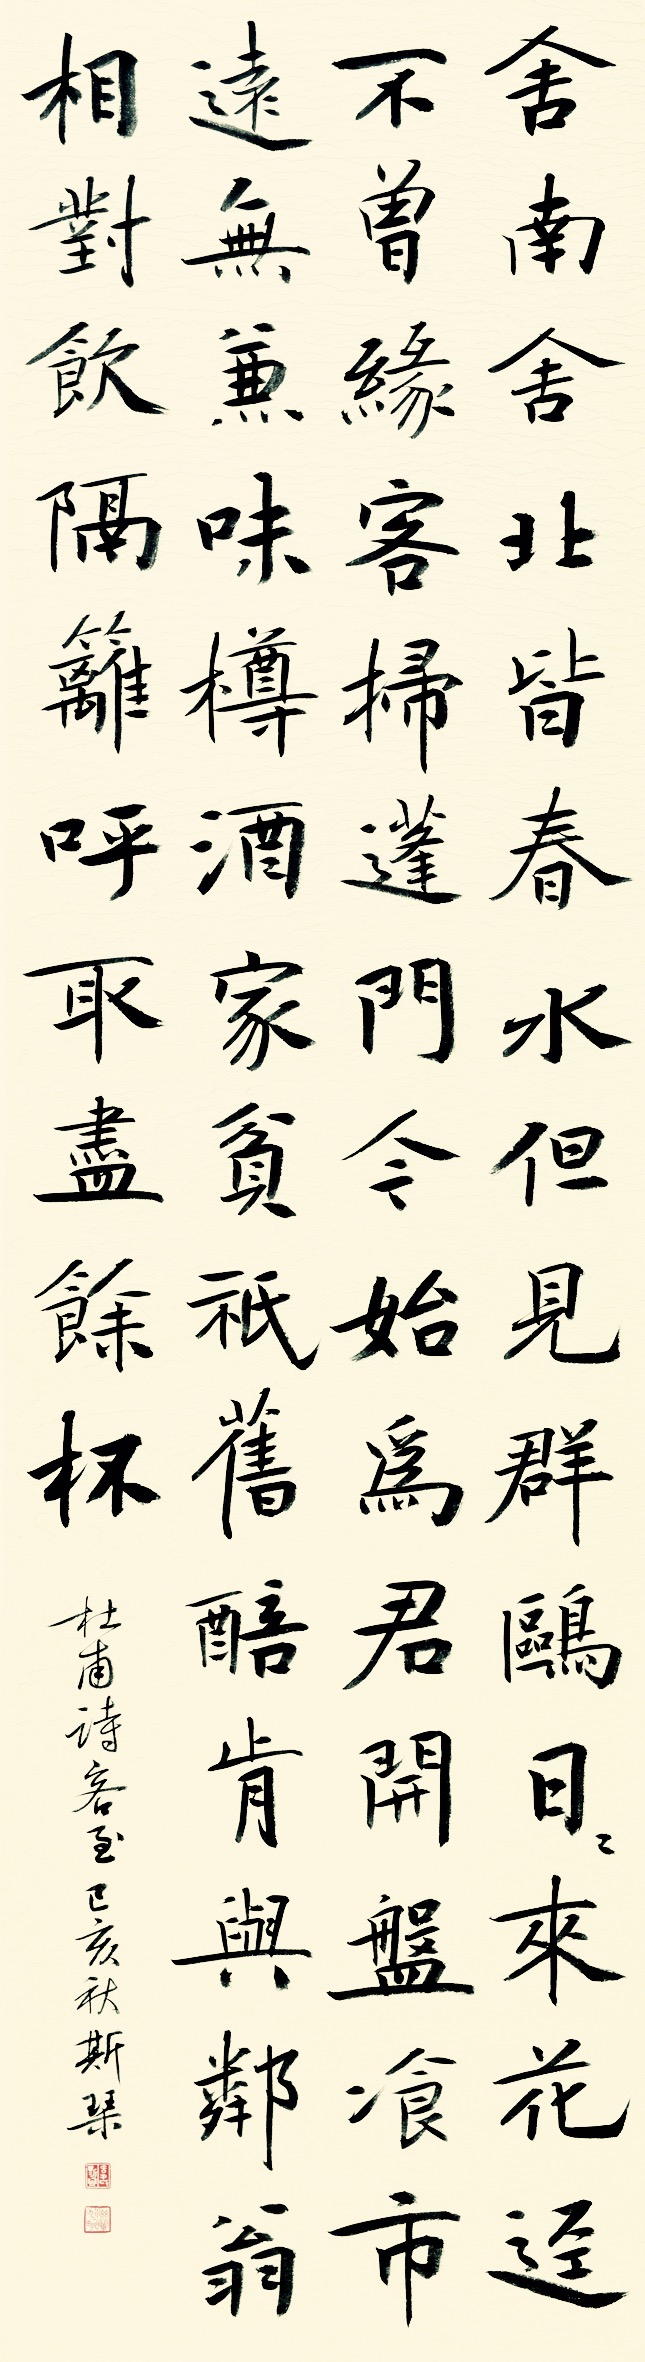 舍南舍北皆春水但見群鷗日々來花逕
不曾緣客掃蓬門今始爲君開盤飡市
遠無兼味樽酒家貧祇舊醅肯與鄰翁
相對飲隔籬呼取盡餘杯
杜甫詩客至己亥秋斯琹